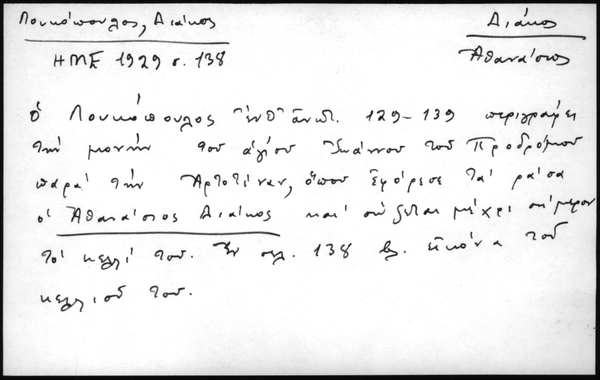 Λουκόπουλος, Διάκος
Διάκος
Ἀθανάσιος
ΗΜΕ 1929 σ. 138
Ὁ Λουκόπουλος ἔνθ' ἀνωτ. 129-139 περιγράφει
τὴν μονὴν τοῦ ἁγίου Ἰωάννου τοῦ Προδρόμου
παρὰ τὴν Ἀρτοτίναν, ὅπου ἐφόρεσε τὰ ράσα
ὁ Ἀθανάσιος Διάκος καὶ σώζεται μέχρι σήμερον
τὸ κελλί του. Ἐν σελ. 138 βλ. εἰκόνα τοῦ
κελλιοῦ του.